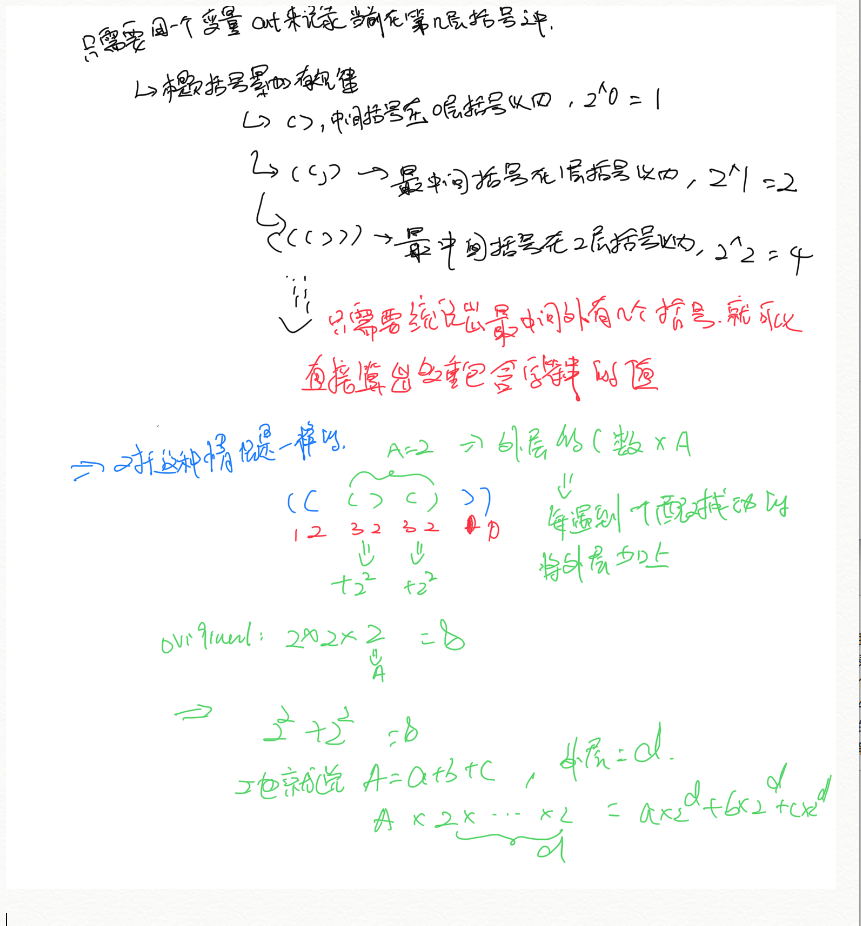 只需要用一个变量 cnt来记录当前在第几层括号之中.
↳本题括号累加有规律
↳ (), 中间括号在 0层括号以内, 2^0 = 1
↳ (()) → 最中间括号在1层括号以内, 2^1 = 2
↳ ((())) → 最中间括号在2层括号以内, 2^2 = 4
只需要统计出最中间外有几个括号.就可以
直接算出这重包含字符串的值
⇒ 对于这种情况是一样的.
A=2 ⇒ 外层的 ( 数 × A
(( () () ))
1 2 3 2 3 2 1 0
每遇到一个配对成功的
将外层加上
+2² +2²
original: 2×2×2 = 8
A
⇒
2² + 2² = 8
也就是说 A=a+b+c , 外层=d.
A × 2× ··· ×2 = a×2^d+b×2^d+c×2^d
d